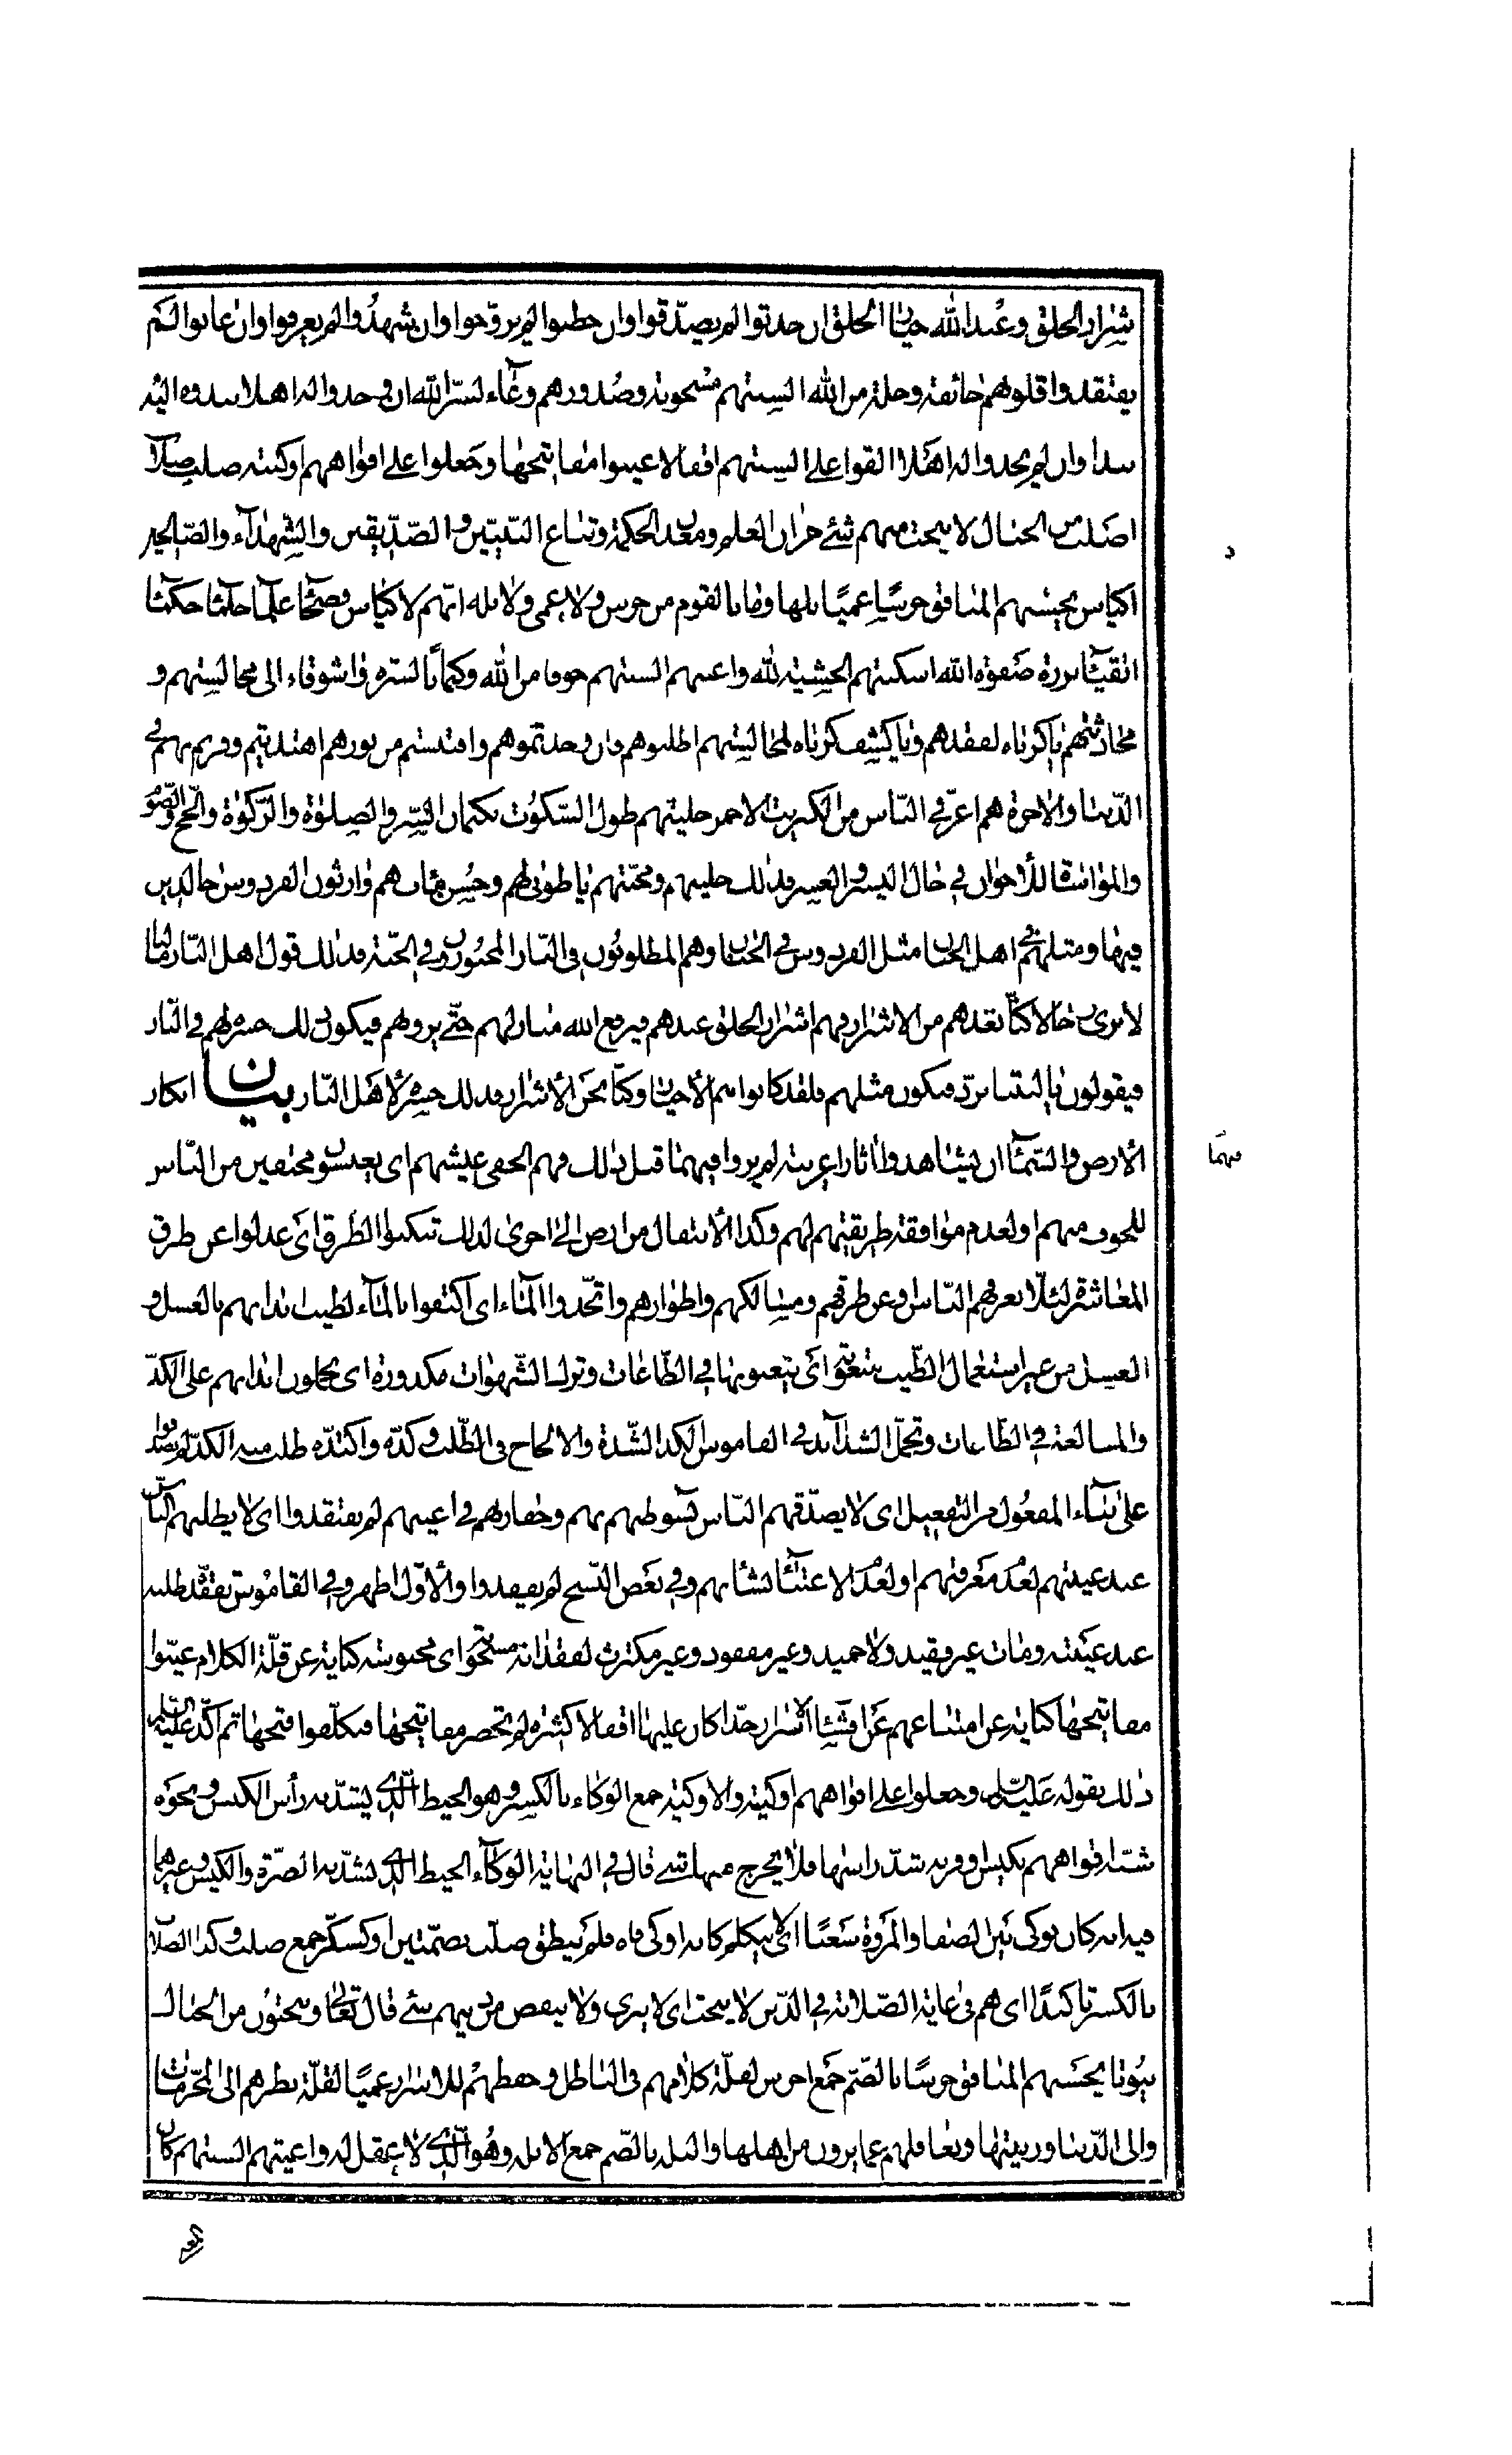 شرار الخلق وعند الله خيار الخلق ان حدثوا لم يصدّقوا وان خطبوا لم يزوّجوا وان شهدوا لم يعرفوا وان غابوا لم
يفتقدوا قلوبهم خائفة وجلة من الله السنتهم مسجونة وصدورهم وعاء لسرّ الله ان وجدوا له اهلا نبذوه اليه
نبذا وان لم يجدوا له اهلا القوا على السنتهم اقفالا غيبوا مفاتيحها وجعلوا على افواههم اوكية صلب صلاب
اصلب من الجبال لا ينحت منهم شئ خزان العلم ومعدن الحكمة وتباع النبيّين والصّدّيقين والشهدآء والصّالحين
اكياس يحسبهم المنافق خرسا عميا بلها وما بالقوم من خرس ولا عمى ولا بله انّهم لاكياس فصحآء علمآء حلمآء حكمآء
اتقيآء بررة صفوة الله اسكنتهم الخشية لله واعيتهم السنتهم خوفا من الله وكتمانا لسرّه فواشوقاه الى مجالستهم و
محادثتهم يا كرباه لفقدهم ويا كشف كرباه لمجالستهم اطلبوهم فان وجدتموهم واقتبستم من نورهم اهتديتم وفزتم بهم في
الدّنيا والاخرة هم اعزّ في النّاس من الكبريت الاحمر حليتهم طول السّكوت بكتمان السّرّ والصلوة والزّكوة والحجّ والصّوم
والمواساة للاخوان في حال اليسر والعسر فذلك حليتهم ومحبّتهم يا طوبى لهم وحسن مآب هم وارثون الفردوس خالدين
فيها ومثلهم في اهل الجنان مثل الفردوس في الجنان وهم المطلوبون في النّار المحبورون في الجنّة فذلك قول اهل النّار ما لنا
لا نرى رجالا كنّا نعدّهم من الاشرار فهم اشرار الخلق عندهم فيرفع الله منازلهم حتّى يرونهم فيكون ذلك حسرة لهم في النّار
فيقولون يا ليتنا نردّ فنكون مثلهم فلقد كانوا هم الأخيار وكنّا نحن الأشرار فذلك حسرة لأهل النّار بيان انكار
الأرض والسّمآء ان يشاهدوا اثارا غريبة لم يروا فيهما قبل ذلك فهم الخفى عيشهم اى يعيشون مختفين من النّاس
للخوف منهم او لعدم موافقة طريقتهم لهم وكذا الأنتقال من ارض الى اخرى لذلك تنكبوا الطّرق اى عدلوا عن طرق
المعاشرة لئلّا يعرفهم النّاس وعن طرقهم ومسالكهم واطوارهم واتّخذوا المآء اى اكتفوا بالمآء لطيب ابدانهم بالغسل و
الغسل من غير استعمال الطّيب متعوبة اى يتعبونها في الطّاعات وترك الشّهوات مكدودة اى يحملون ابدانهم على الكدّ
والمبالغة في الطّاعات وتحمّل الشدآئد في القاموس الكدّ الشّدة والالحاح في الطّلب وكدّه واكتدّه طلب منه الكدّ لم يصدقوا
على بنآء المفعول من التفعيل اى لا يصدّقهم النّاس لسوء ظنهم بهم وحقارتهم في اعينهم لم يفتقدوا اى لا يطلبهم النّاس
عند غيبتهم لعدم معرفتهم او لعدم الاعتنآء بشانهم وفي بعض النّسخ لم يفقدوا والأوّل اظهر وفي القاموس تفقّده طلبه
عند غيبته ومات غير فقيد ولا حميد وغير مفقود وغير مكترث لفقدانه مسجونة اى محبوسة كناية عن قلّة الكلام غيّبوا
مفاتيحها كناية عن امتناعهم عن افشآء الاسرار جدّا كان عليها اقفالا كثيرة لم تحضر مفاتيحها فيكلّفوا فتحها ثم اكّد عليه السّلم
ذلك بقوله عليه السّلم وجعلوا على افواههم اوكية والاوكية جمع الوكاء بالكسر وهو الخيط الّذي يشدّ به رأس الكيس ونحوه
شبّه افواههم بكيس او قربة شدّ راسها فلا يخرج منها شئ قال في النهاية الوكآء الخيط الّذي تشدّ به الصّرة والكيس وغيرها
فيه انه كان يوكى بين الصّفا والمروة سعيًا اى لا يتكلم كانه اوكى فاه فلم ينطق صلب بضمّتين او كسكّر جمع صلب وكذا الصّلاب
بالكسر تاكيدًا اى هم في غاية الصّلابة في الدّين لا ينحت اى لا يبرى ولا ينقص من دينهم شئ قال تعالى وينحتون من الجبال
بيوتا يحسبهم المنافق خرسًا بالضّم جمع اخرس لقلّة كلامهم في الباطل وحفظهم للاسرار عميًا لقلّة نظرهم الى المحرّمات
والى الدّنيا وزينتها وتغافلهم عما يرون من اهلها والبله بالضّم جمع الابله وهو الّذي لا عقل له واعيتهم السنتهم كان
د
فيهما